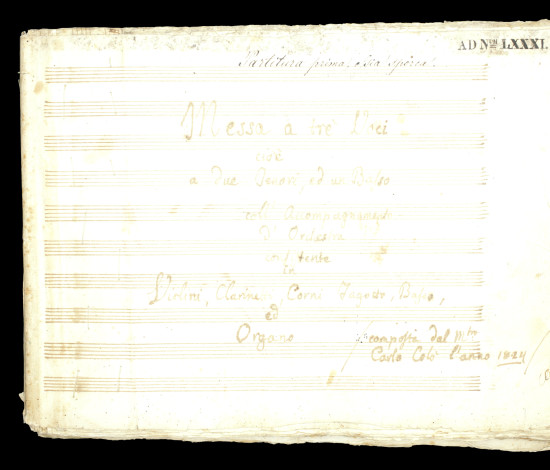 AD Num LXXXI.
Partitura prima, ossia sporca.
Messa a tre Voci
cioè
a due Tenori, ed un Basso
coll' Accompagnamento
d' Orchestra
in
Violini, Clarine, Corni, Fagotto, Basso,
ed
Organo
composta dal Mtro
Carlo l'anno 1824